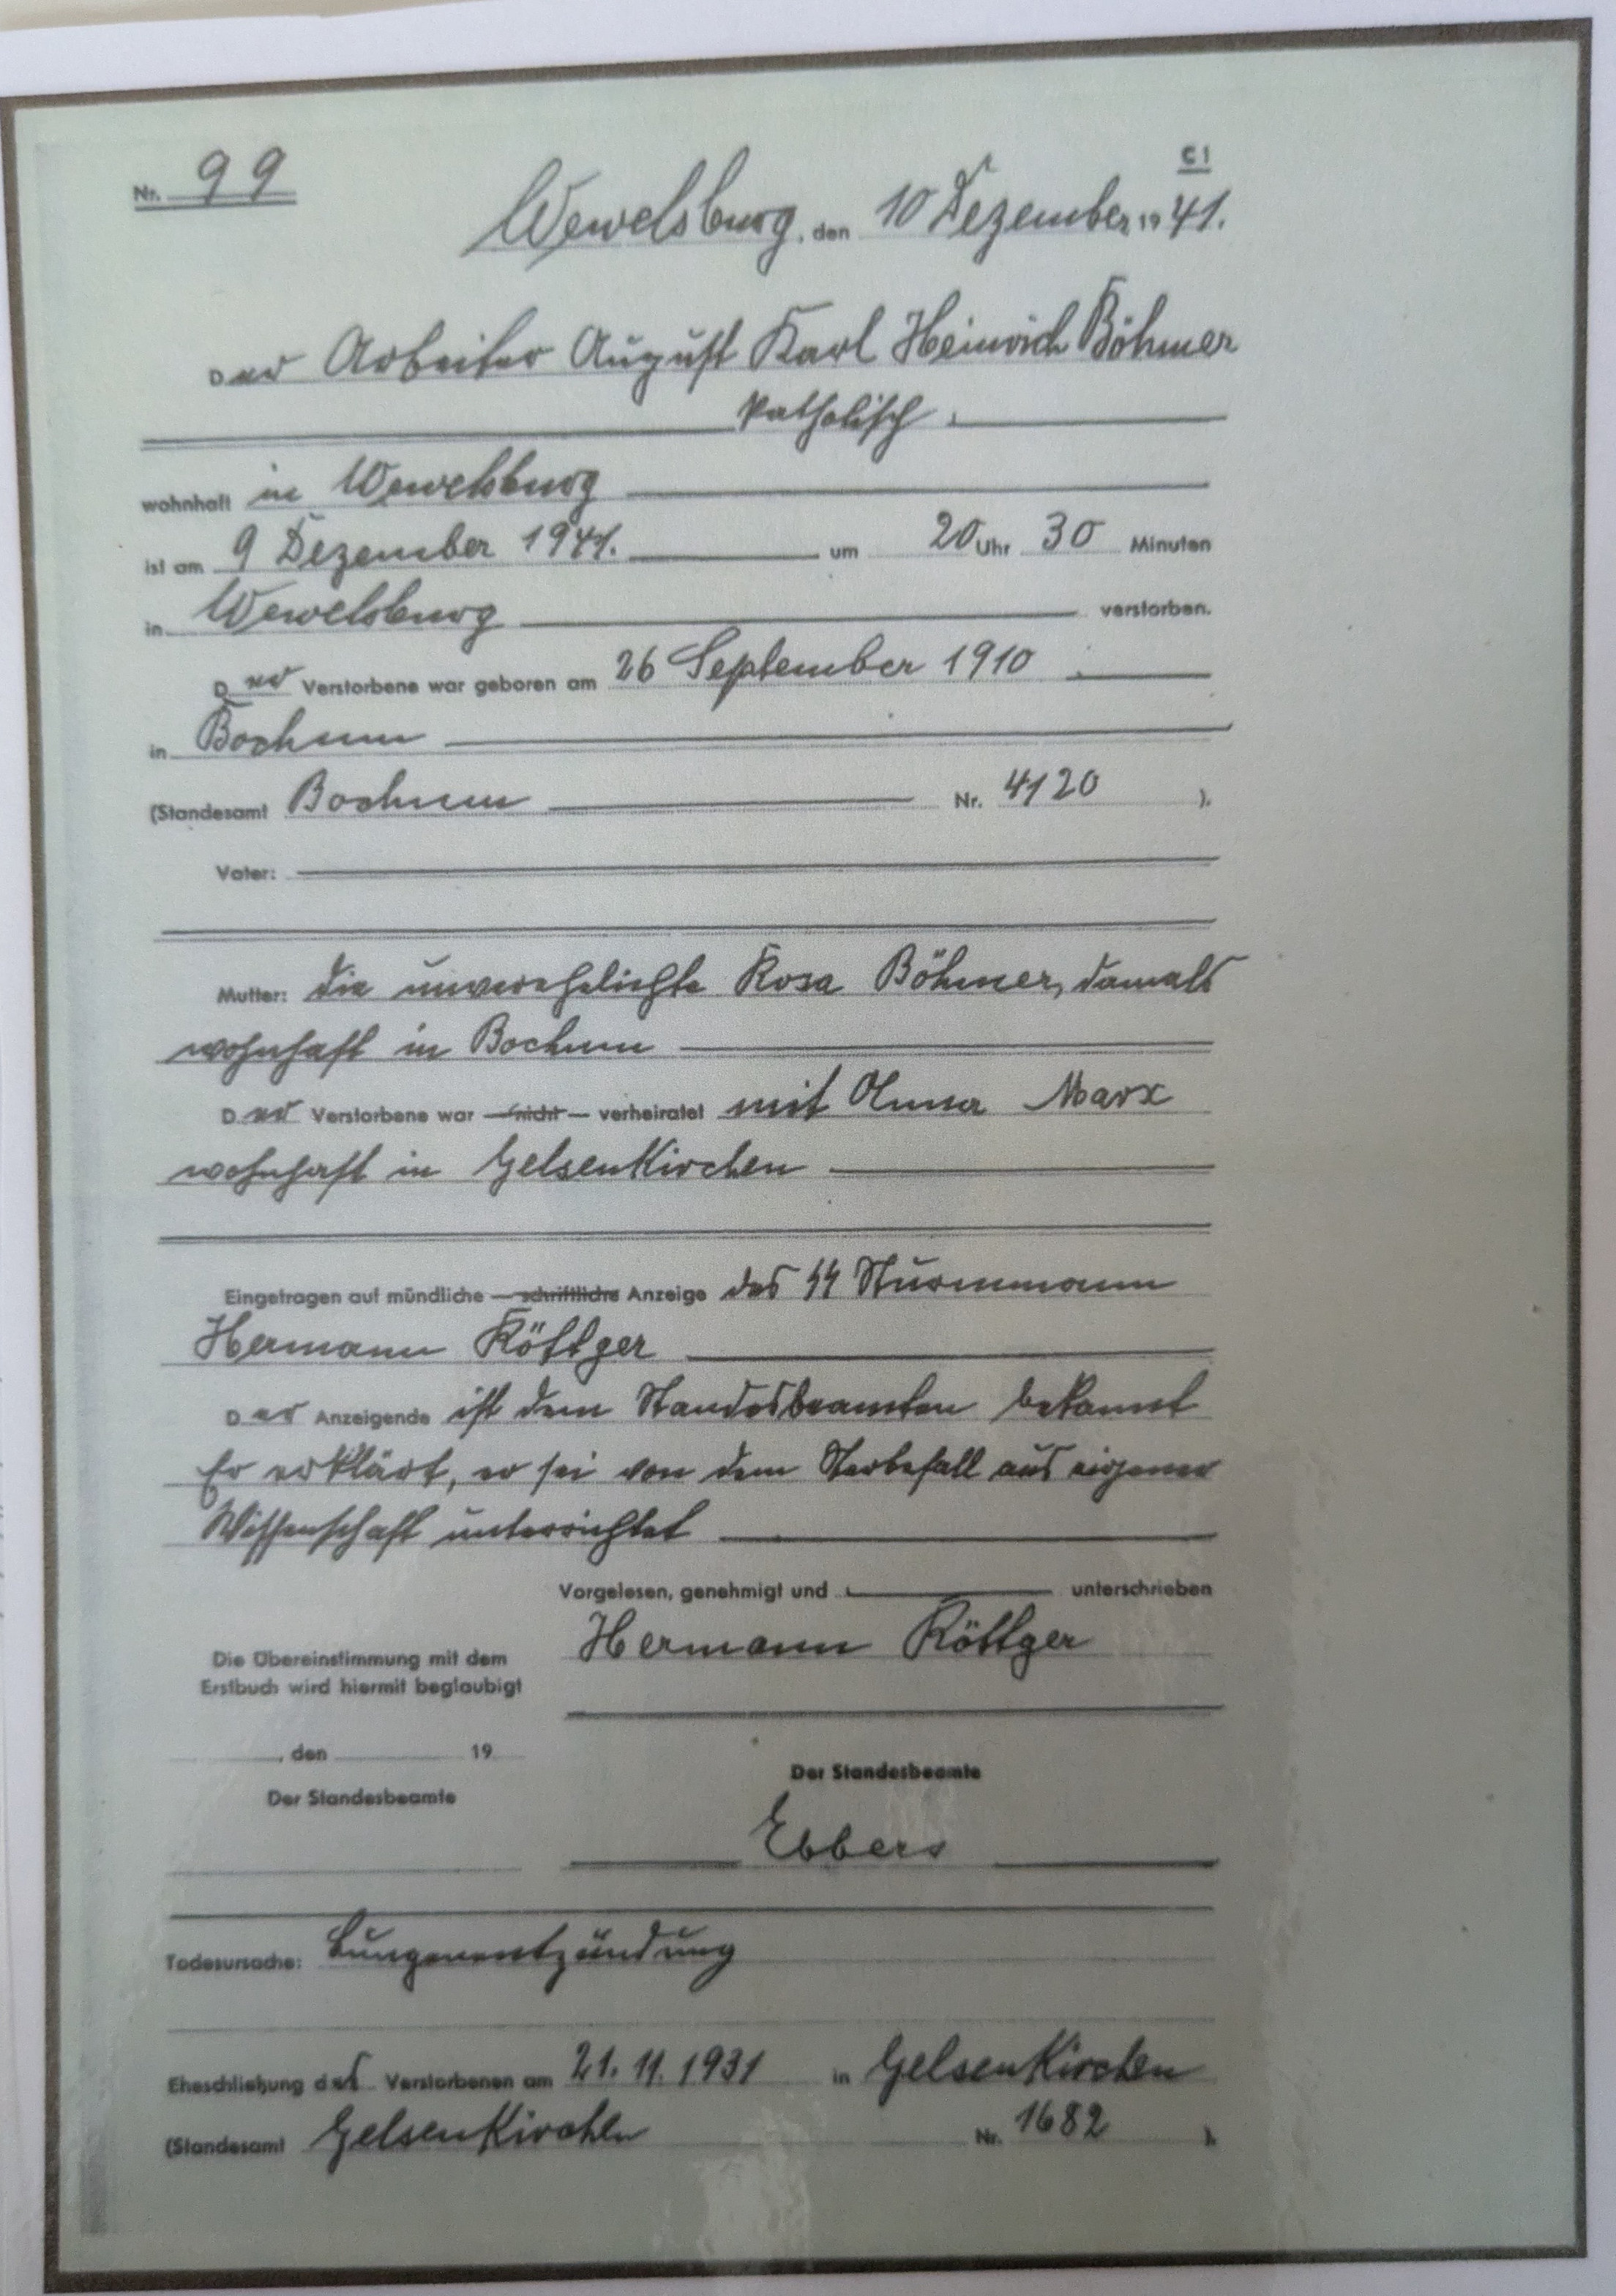 C I
Nr. 99
Wewelsburg, den 10 Dezember 1941.
Der Arbeiter August Karl Heinrich Böhmer
katholisch
wohnhaft in Wewelsburg
ist am 9 Dezember 1941. um 20 Uhr 30 Minuten
in Wewelsburg verstorben.
Der Verstorbene war geboren am 26 September 1910
in Bochum
(Standesamt Bochum Nr. 4120 ).
Vater:
Mutter: die unverehelichte Rosa Böhmer, damals
wohnhaft in Bochum
Der Verstorbene war — nicht — verheiratet mit Anna Marx
wohnhaft in Gelsenkirchen
Eingetragen auf mündliche — schriftliche Anzeige des SS Sturmmann
Hermann Köttger
Der Anzeigende ist dem Standesbeamten bekannt
Er erklärt, er sei von dem Sterbefall aus eigener
Wissenschaft unterrichtet
Vorgelesen, genehmigt und unterschrieben
Hermann Köttger
Die Übereinstimmung mit dem
Erstbuch wird hiermit beglaubigt
, den 19
Der Standesbeamte
Der Standesbeamte
Ebbers
Todesursache: Lungenentzündung
Eheschließung des Verstorbenen am 21.11.1931 in Gelsenkirchen
(Standesamt Gelsenkirchen Nr. 1682 ).